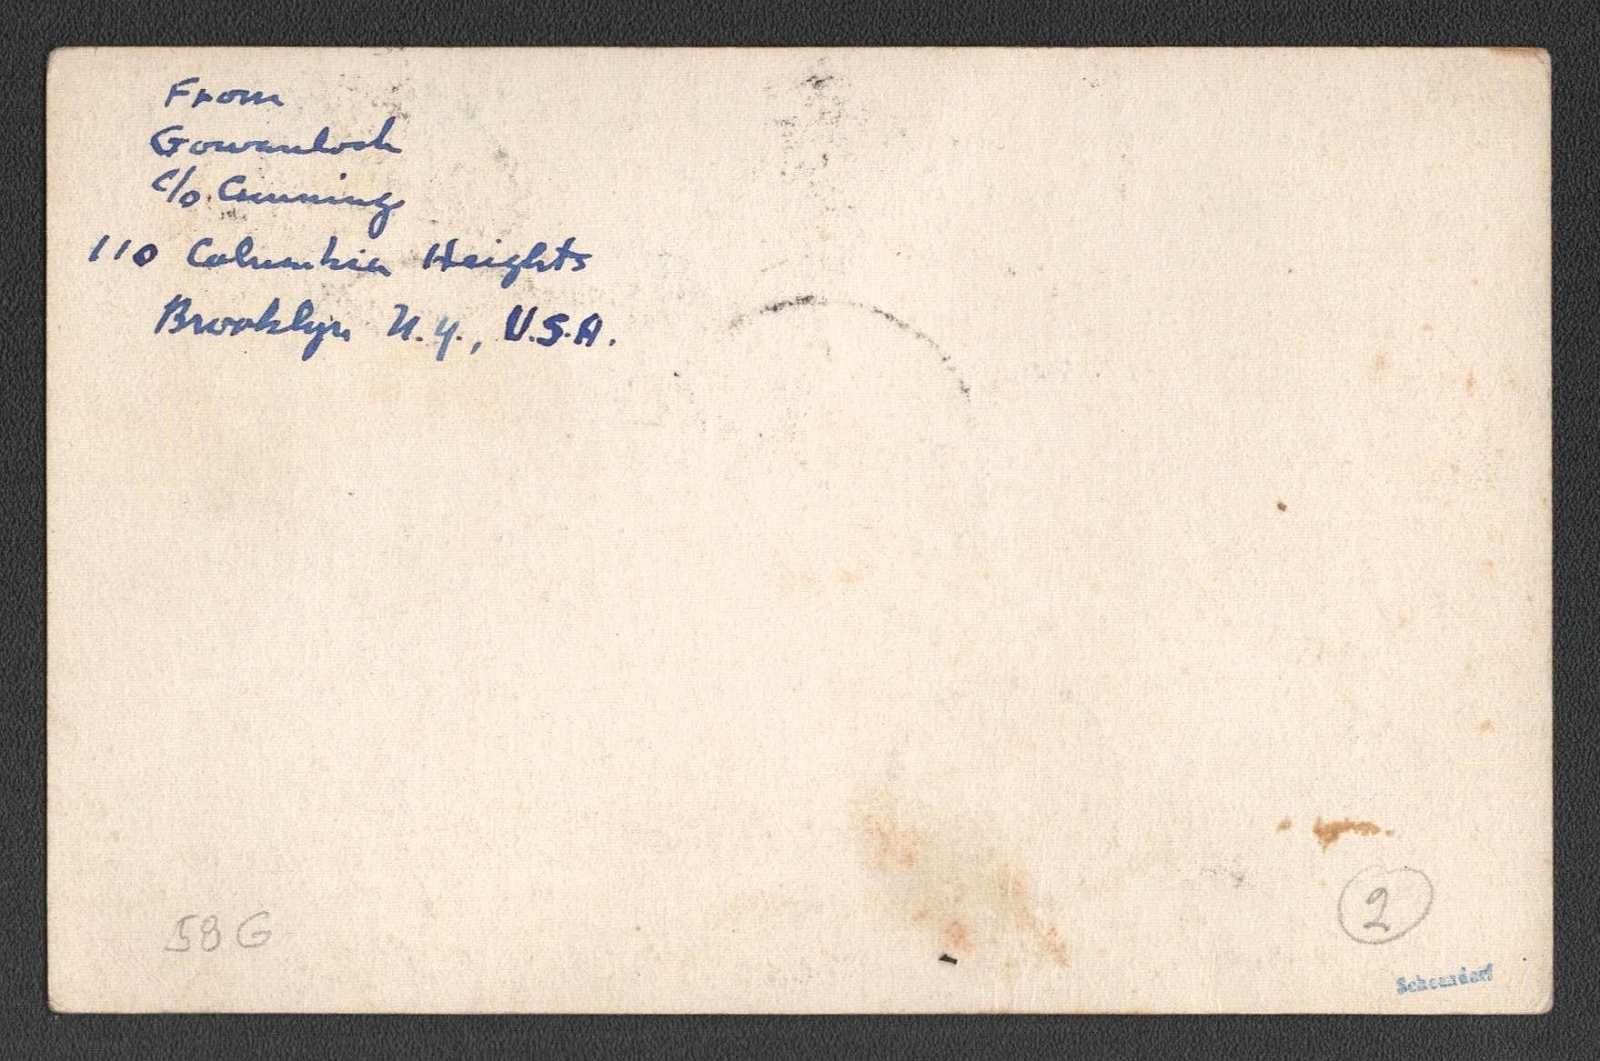 From
Gowanloch
c/o Cunning
110 Columbia Heights
Brooklyn N.Y., U.S.A.
58 G
2